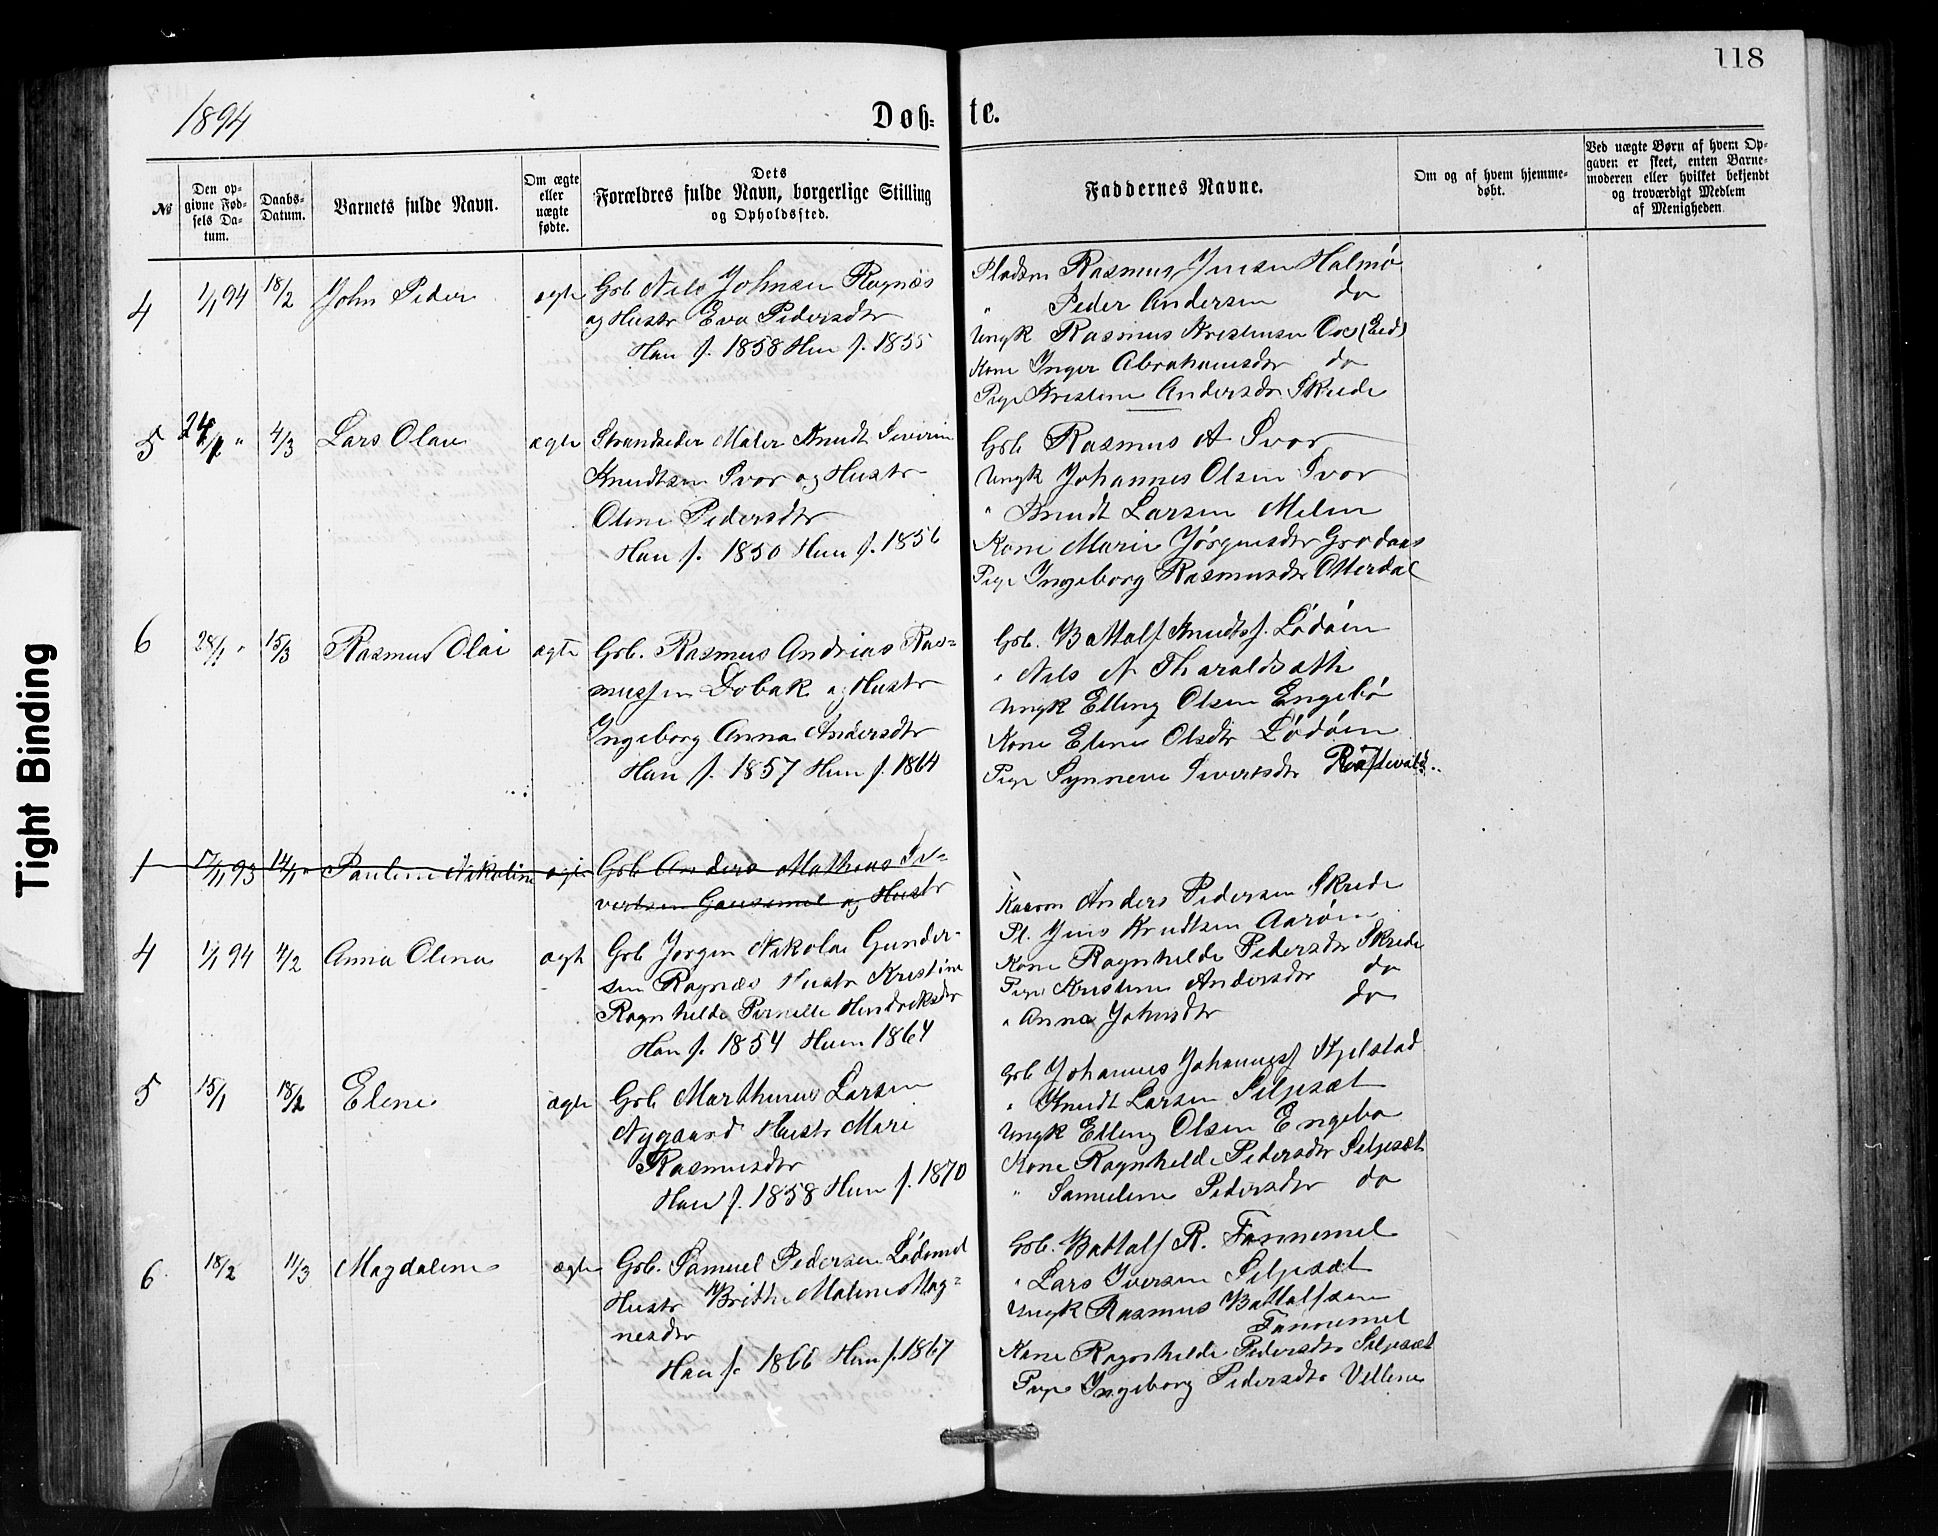 118
1894
Døb=
te.
№
Den op-
givne Fød-
sels Da-
tum.
Daabs-
Datum.
Barnets fulde Navn.
Om ægte
eller
uægte
fødte.
Dets
Forældres fulde Navn, borgerlige Stilling
og Opholdsfted.
Faddernes Navne.
Om og af hvem hjemme-
døbt.
Ved uægte Børn af hvem Op-
gaven er skeet, enten Barne-
moderen eller hvilket bekjendt
og troværdigt Medlem
af Menigheden.
4 1/1 94 18/2 John Peder ægte Gsb Nils Johnsen Rognæs
og Hustr Eva Pedersdtr
Han f. 1858 Hun f. 1855
Pladsm Rasmus Jensen Halmø
" Peder Andersen do
Ungk Rasmus Kristensen (Eid)
Kone Inger Abrahamsdtr do
Pige Kristine Andersdtr Skrede
5 24/1 " 4/3 Lars Olau ægte Strandsider Maler Knudt Severin
Knudtsen Svor og Hustr
Oline Pedersdtr
Han f. 1850 Hun f. 1856
Gsb Rasmus A Svor
Ungk Johannes Olsen Svor
" Knudt Larsen Melen
Kone Marie Jørgensdtr Grodaas
Pige Ingeborg Rasmusdtr Otterdal
6 28/1 " 15/3 Rasmus Olai ægte Gsb. Rasmus Andrias Ras=
mussen Dobak og Hustr
Ingeborg Anna Andersdtr
Han f. 1857 Hun f. 1864
Gsb. Battolf Knudts. Lødøen
" Nils N Tharaldsæth
Ungk Elling Olsen Engebø
Kone Eline Olsdtr Lødøen
Pige Synneve Sivertsdtr
1 17/11 93 14/1 " Pauline Nikoline ægte Gsb Anders Mathias Si=
vertsen Gausemel og Hustr
4 1/1 94 4/2 Anna Olina ægt Gsb Jørgen Nikolai Gunder-
sen Rognæs Hustr Kristine
Ragnhilde Pernille Hendriksdtr
Han f. 1854 Hun 1864
Anders Pedersen Skrede
Pl. Jens Knudtsen Aarøen
Kone Ragnhilde Pedersdtr Skrede
Pige Kristine Andersdtr do
" Anna Johnsdtr do
5 15/1 18/2 Eline ægte Gsb Marthinus Larsen
Nygaard Hustr Mari
Rasmusdtr
Han f. 1858 Hun f. 1870
Gsb Johannes Johanness Hjelstad
" Knudt Larsen Siljesæt
Ungk Elling Olsen Engebø
Kone Ragnhilde Pedersdtr Siljesæt
" Samueline Pedersdtr do
6 18/2 11/3 Magdaline ægte Gsb. Samuel Pedersen Lødemel
Hustr Brithe Maline Mag=
nesdtr
Han f. 1866 Hun f. 1867
Gsb. Battolf R. Fannemel
" Lars Iversen Siljesæt
Ungk Rasmus Battolfsen
Fannemel
Kone Ragnhilde Pedersdtr Siljesæt
Pige Ingeborg Pedersdtr Vellene
Tight Binding